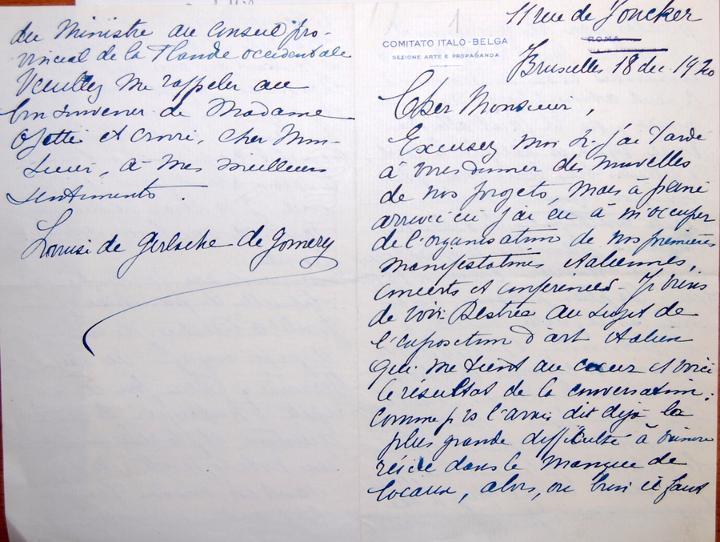 11 rue de Joncker
COMITATO ITALO-BELGA
SEZIONE ARTE E PROPAGANDA
ROMA
Bruxelles 18 dec 1920
Cher Monsieur,
Excusez moi si j'ai tardé
à vous donner des nouvelles
de nos projets, mais à peine
arrivée ici j'ai eu à m'occuper
de l'organisation de nos premières
manifestations italiennes,
concerts et conférences. Je viens
de voir Destrée au sujet de
l'exposition d'art italien
qui me tient au coeur et voici
le résultat de la conversation:
comme je vous l'avais dit déjà la
plus grande difficulté à vaincre
réside dans le manque de
locaux, alors, ou bien il faut
du Ministre au Conseil pro-
vincial de la Flandre occidentale
Veuillez me rappeler au
bon souvenir de Madame
Ojetti et croire, cher Mon-
sieur, à mes meilleurs
sentiments.
de Gerlache de Gomery